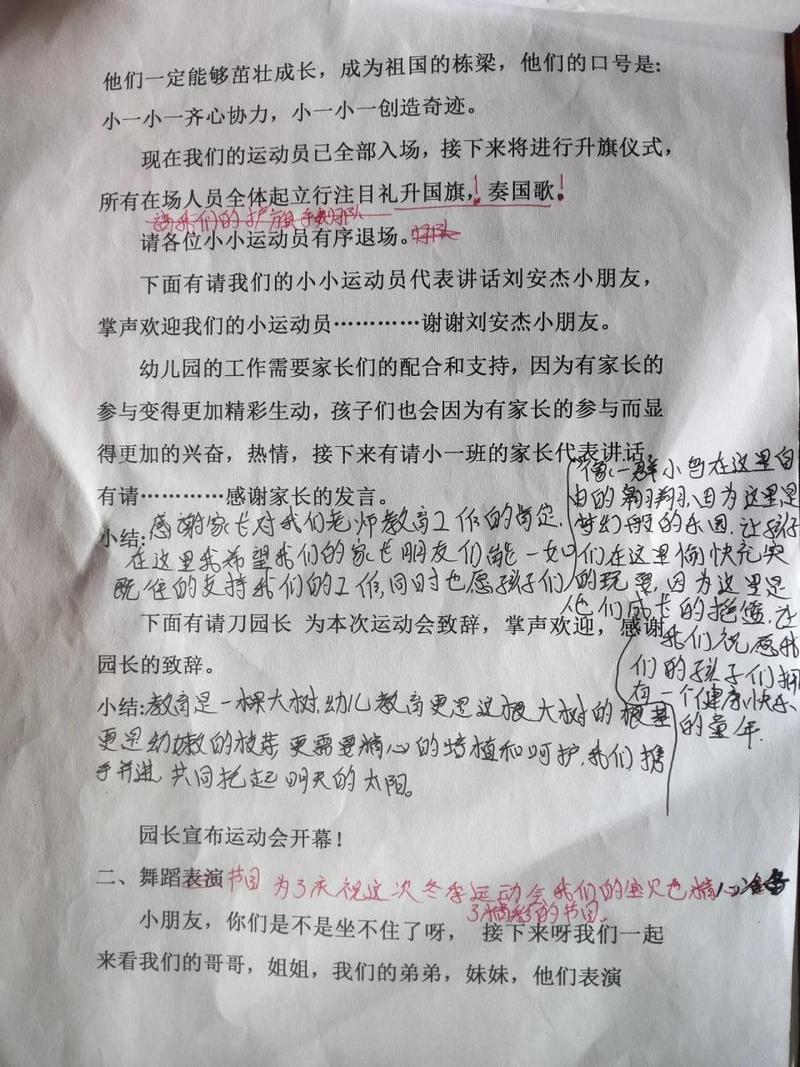 他们一定能够茁壮成长，成为祖国的栋梁，他们的口号是:
小一小一齐心协力，小一小一创造奇迹。
现在我们的运动员已全部入场，接下来将进行升旗仪式，
所有在场人员全体起立行注目礼升国旗，！奏国歌！
请我们的护旗手
请各位小小运动员有序退场。
下面有请我们的小小运动员代表讲话刘安杰小朋友，
掌声欢迎我们的小运动员…………谢谢刘安杰小朋友。
幼儿园的工作需要家长们的配合和支持，因为有家长的
参与变得更加精彩生动，孩子们也会因为有家长的参与而显
得更加的兴奋，热情，接下来有请小一班的家长代表讲话，
有请…………感谢家长的发言。
小结:感谢家长对我们老师教育工作的肯定.
在这里我希望我们的家长朋友们能一如
既住的支持我们的工作,同时也愿孩子们
像一群小鸟在这里自
由的翱翔,因为这里是
梦幻般的乐园.让孩子
们在这里愉快充实
的玩耍,因为这里是
他们成长的摇篮.让
我们祝愿我
们的孩子们拥
有一个健康、快乐、
的童年.
下面有请刀园长 为本次运动会致辞，掌声欢迎，感谢
园长的致辞。
小结:教育是一棵大树.幼儿教育更是这棵大树的根基
更是幼嫩的枝芽,更需要精心的培植和呵护.我们携
手并进,共同托起明天的太阳。
园长宣布运动会开幕！
二、舞蹈表演节目 为了庆祝这次冬季运动会我们的宝贝也精心准备
了精彩的节目。
小朋友，你们是不是坐不住了呀， 接下来呀我们一起
来看我们的哥哥，姐姐，我们的弟弟，妹妹，他们表演